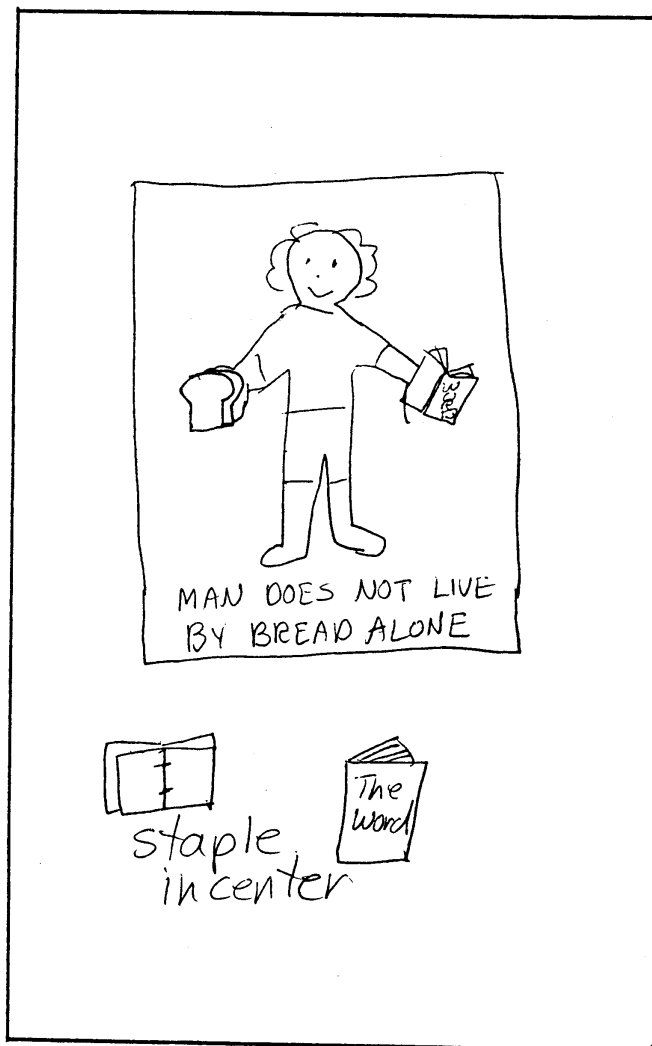 MAN DOES NOT LIVE
BY BREAD ALONE
staple
in center
The
Word